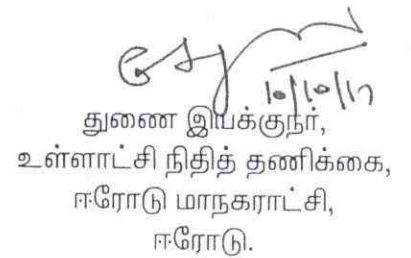 10/10/17
துணை இயக்குநர்,
உள்ளாட்சி நிதித் தணிக்கை,
ஈரோடு மாநகராட்சி,
ஈரோடு.